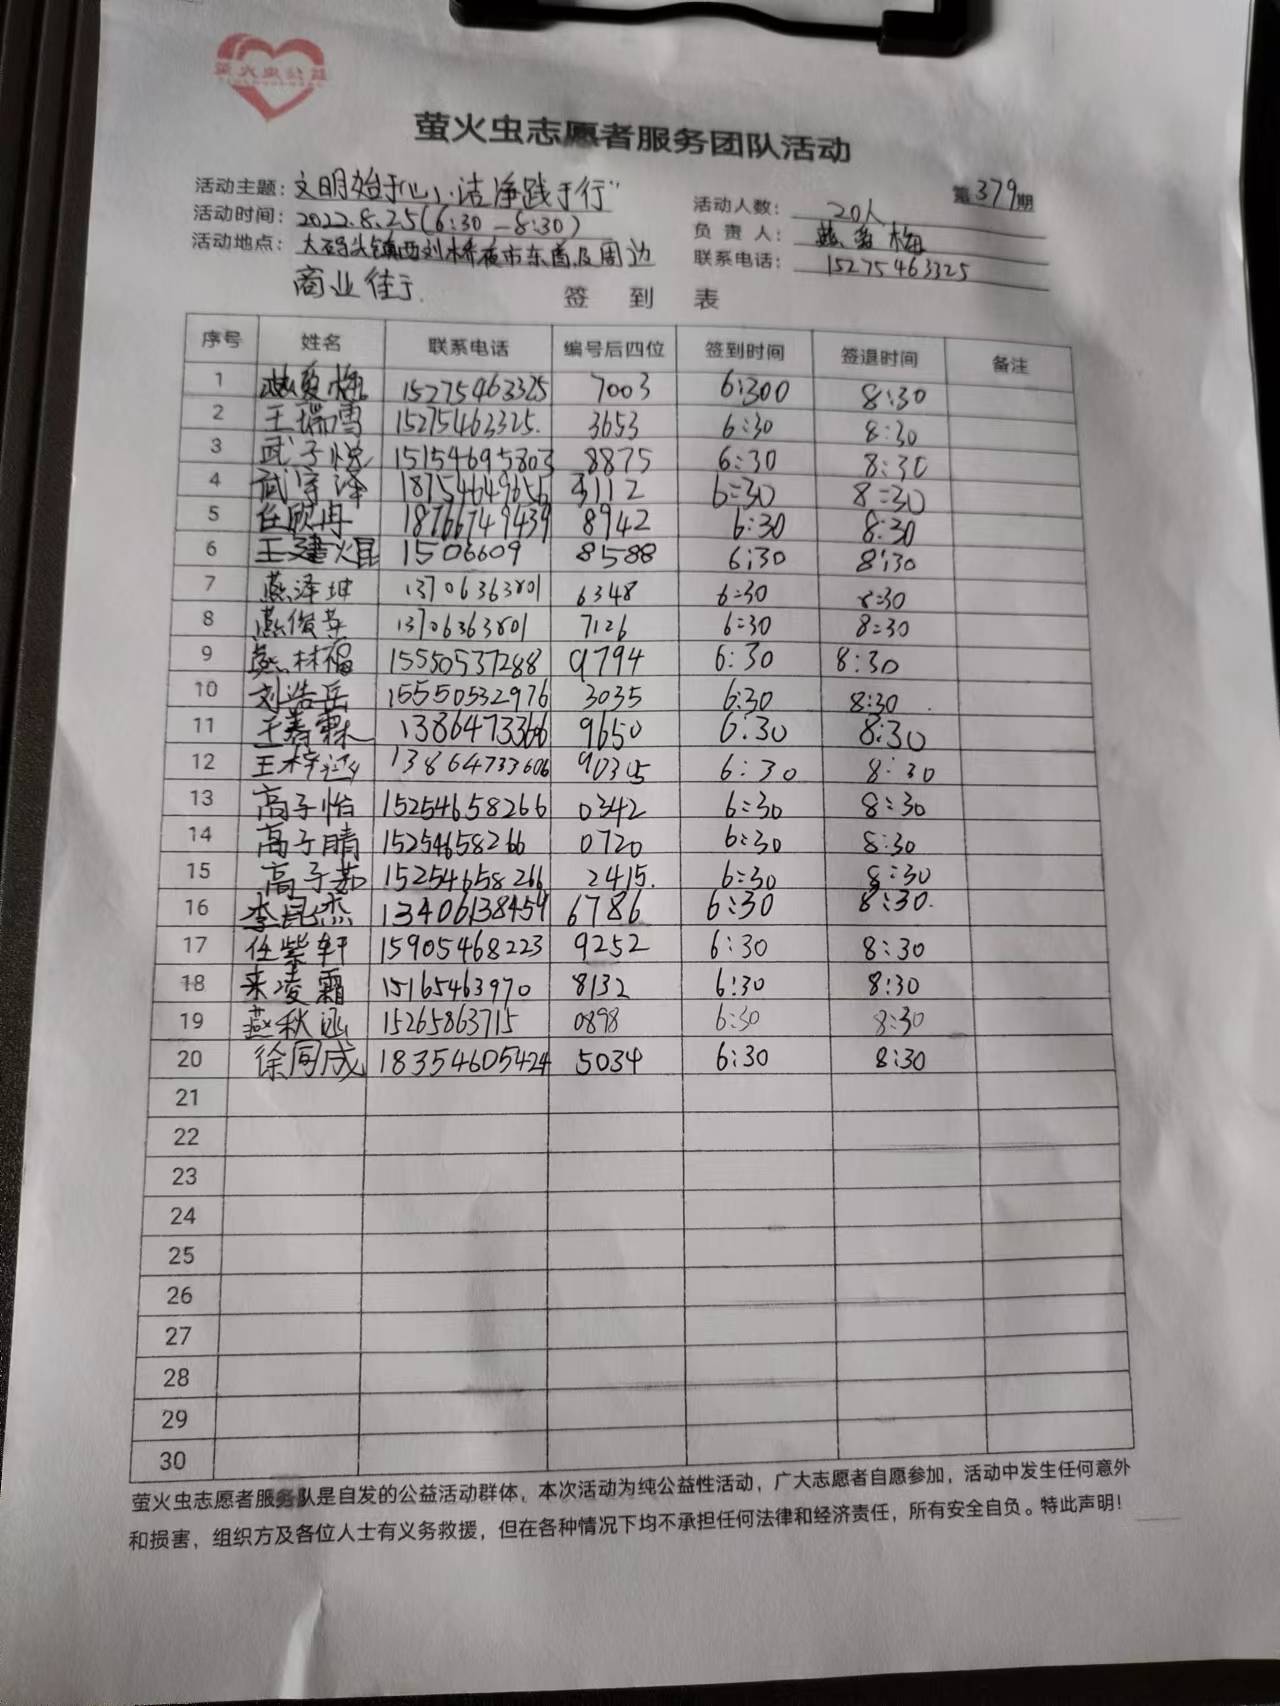 萤火虫志愿者服务团队活动
第379期
活动主题：文明始于心，洁净践于行"
活动人数：20人
活动时间：2022.8.25(6:30-8:30)
负责人：燕 梅
活动地点：大码头镇西刘桥夜市东首及周边
联系电话：15275463325
商业街.
签到表
序号 姓名 联系电话 编号后四位 签到时间 签退时间 备注
1 梅 15275463325 7003 6:300 8:30
2 王瑞雪 15275463325. 3653 6:30 8:30
3 武子悦 15154695803 8875 6:30 8:30
4 武宇泽 18754649656 3112 6:30 8:30
5 任欣冉 18766749439 8942 6:30 8:30
6 王建焜 1506609 8588 6:30 8:30
7 燕泽坤 13706363801 6348 6:30 8:30
8 燕俊 13706363801 7126 6:30 8:30
9 燕林福 15550537288 9794 6:30 8:30
10 刘浩岳 15550532976 3035 6:30 8:30
11 王 霖 1386473366 9650 6:30 8:30
12 王梓 13864733606 6:30 8:30
13 高子怡 15254658266 0342 6:30 8:30
14 高子晴 15254658266 0720 6:30 8:30
15 高子茹 15254658266 2415. 6:30 8:30
16 李昆杰 13406138459 6786 6:30 8:30.
17 任紫轩 15905468223 9252 6:30 8:30
18 来凌霜 15165463970 8132 6:30 8:30
19 燕秋函 15265863715 0898 6:30 8:30
20 徐同成 18354605424 5034 6:30 8:30
21
22
23
24
25
26
27
28
29
30
萤火虫志愿者服务队是自发的公益活动群体，本次活动为纯公益性活动，广大志愿者自愿参加，活动中发生任何意外
和损害，组织方及各位人士有义务救援，但在各种情况下均不承担任何法律和经济责任，所有安全自负。特此声明！